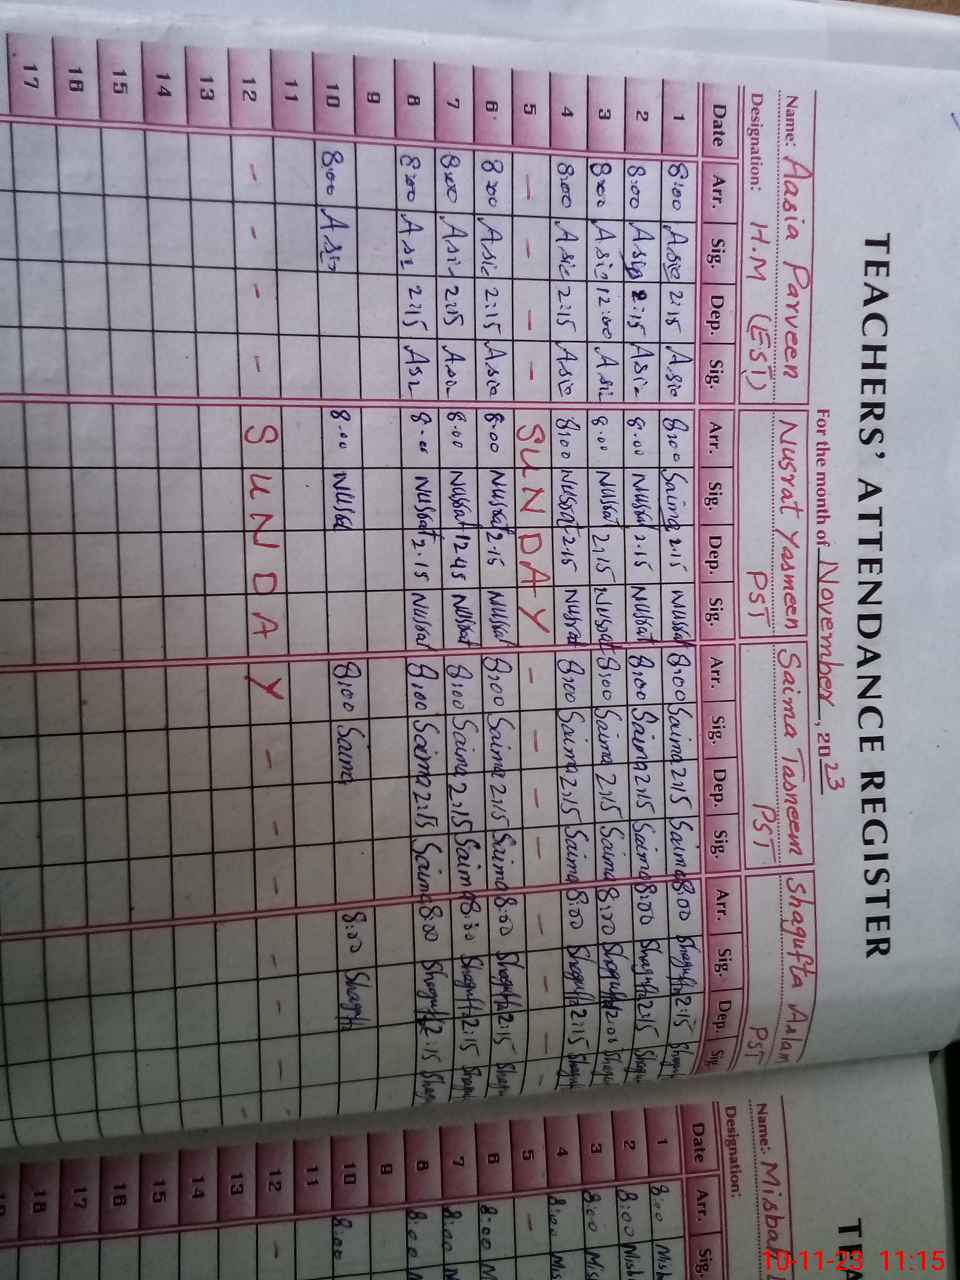 TEACHERS' ATTENDANCE REGISTER
For the month of November, 2023
Name: Aasia Parveen Nusrat Yasmeen Saima Tasneem Shagufta Aslam
Designation: H.M (EST) PST PST PST
Date Arr. Sig. Dep. Sig. Arr. Sig. Dep. Sig. Arr. Sig. Dep. Sig. Arr. Sig. Dep. Sig.
1 8:00 Asia 2:15 Asia 8:00 Saima 2:15 Nussat 8:00 Saima 2:15 Saima 8:00 Shagufta 2:15
2 8:00 Asia 2:15 Asia 8.00 Nussat 2.15 Nussat 8:00 Saima 2:15 Saima 8:00 Shagufta 2:15
3 8:00 Asia 12:00 Asia 8.00 Nussat 2:15 Nussat 8:00 Saima 2:15 Saima 8:00 Shagufta
4 8:00 Asia 2:15 Asia 8:00 Nussat 2.15 Nussat 8:00 Saima 2:15 Saima 8:00 Shagufta 2:15
5 - - - - SUNDAY - - - - - - -
6 8:00 Asia 2:15 Asia 8.00 Nussat 2.15 Nussat 8:00 Saima 2:15 Saima 8:00 Shagufta 2:15
7 8:00 Asia 2:15 Asia 8.00 Nussat 12 45 Nussat 8:00 Saima 2:15 Saima 8:00 Shagufta 2:15
8 8:00 Asia 2:15 Asia 8.00 Nussat 2.15 Nussat 8:00 Saima 2:15 Saima 8:00 Shagufta 2:15
9
10 8:00 Asia 8.00 Nussat 8:00 Saima 8:00 Shagufta
11
12 - - - - SUNDAY - - - - - -
13
14
15
16
17
Name: Misbah
Designation:
Date Arr. Sig.
1 8:00
2 8:00
3 8:00
4 8:00
5 -
6 8:00
7 8:00
8 8:00
9
10 8:00
11
12 -
13
14
15
16
17
18
10-11-23 11:15